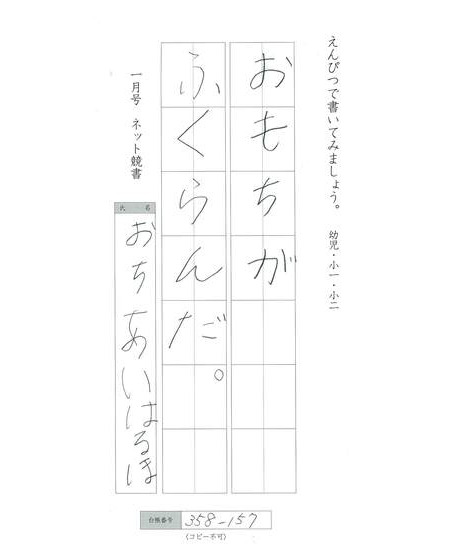 えんぴつで書いてみましょう。 幼児・小一・小二
おもちが
ふくらんだ。
一月号 ネット競書
氏名
おちあいはるほ
台帳番号 358-157
(コピー不可)